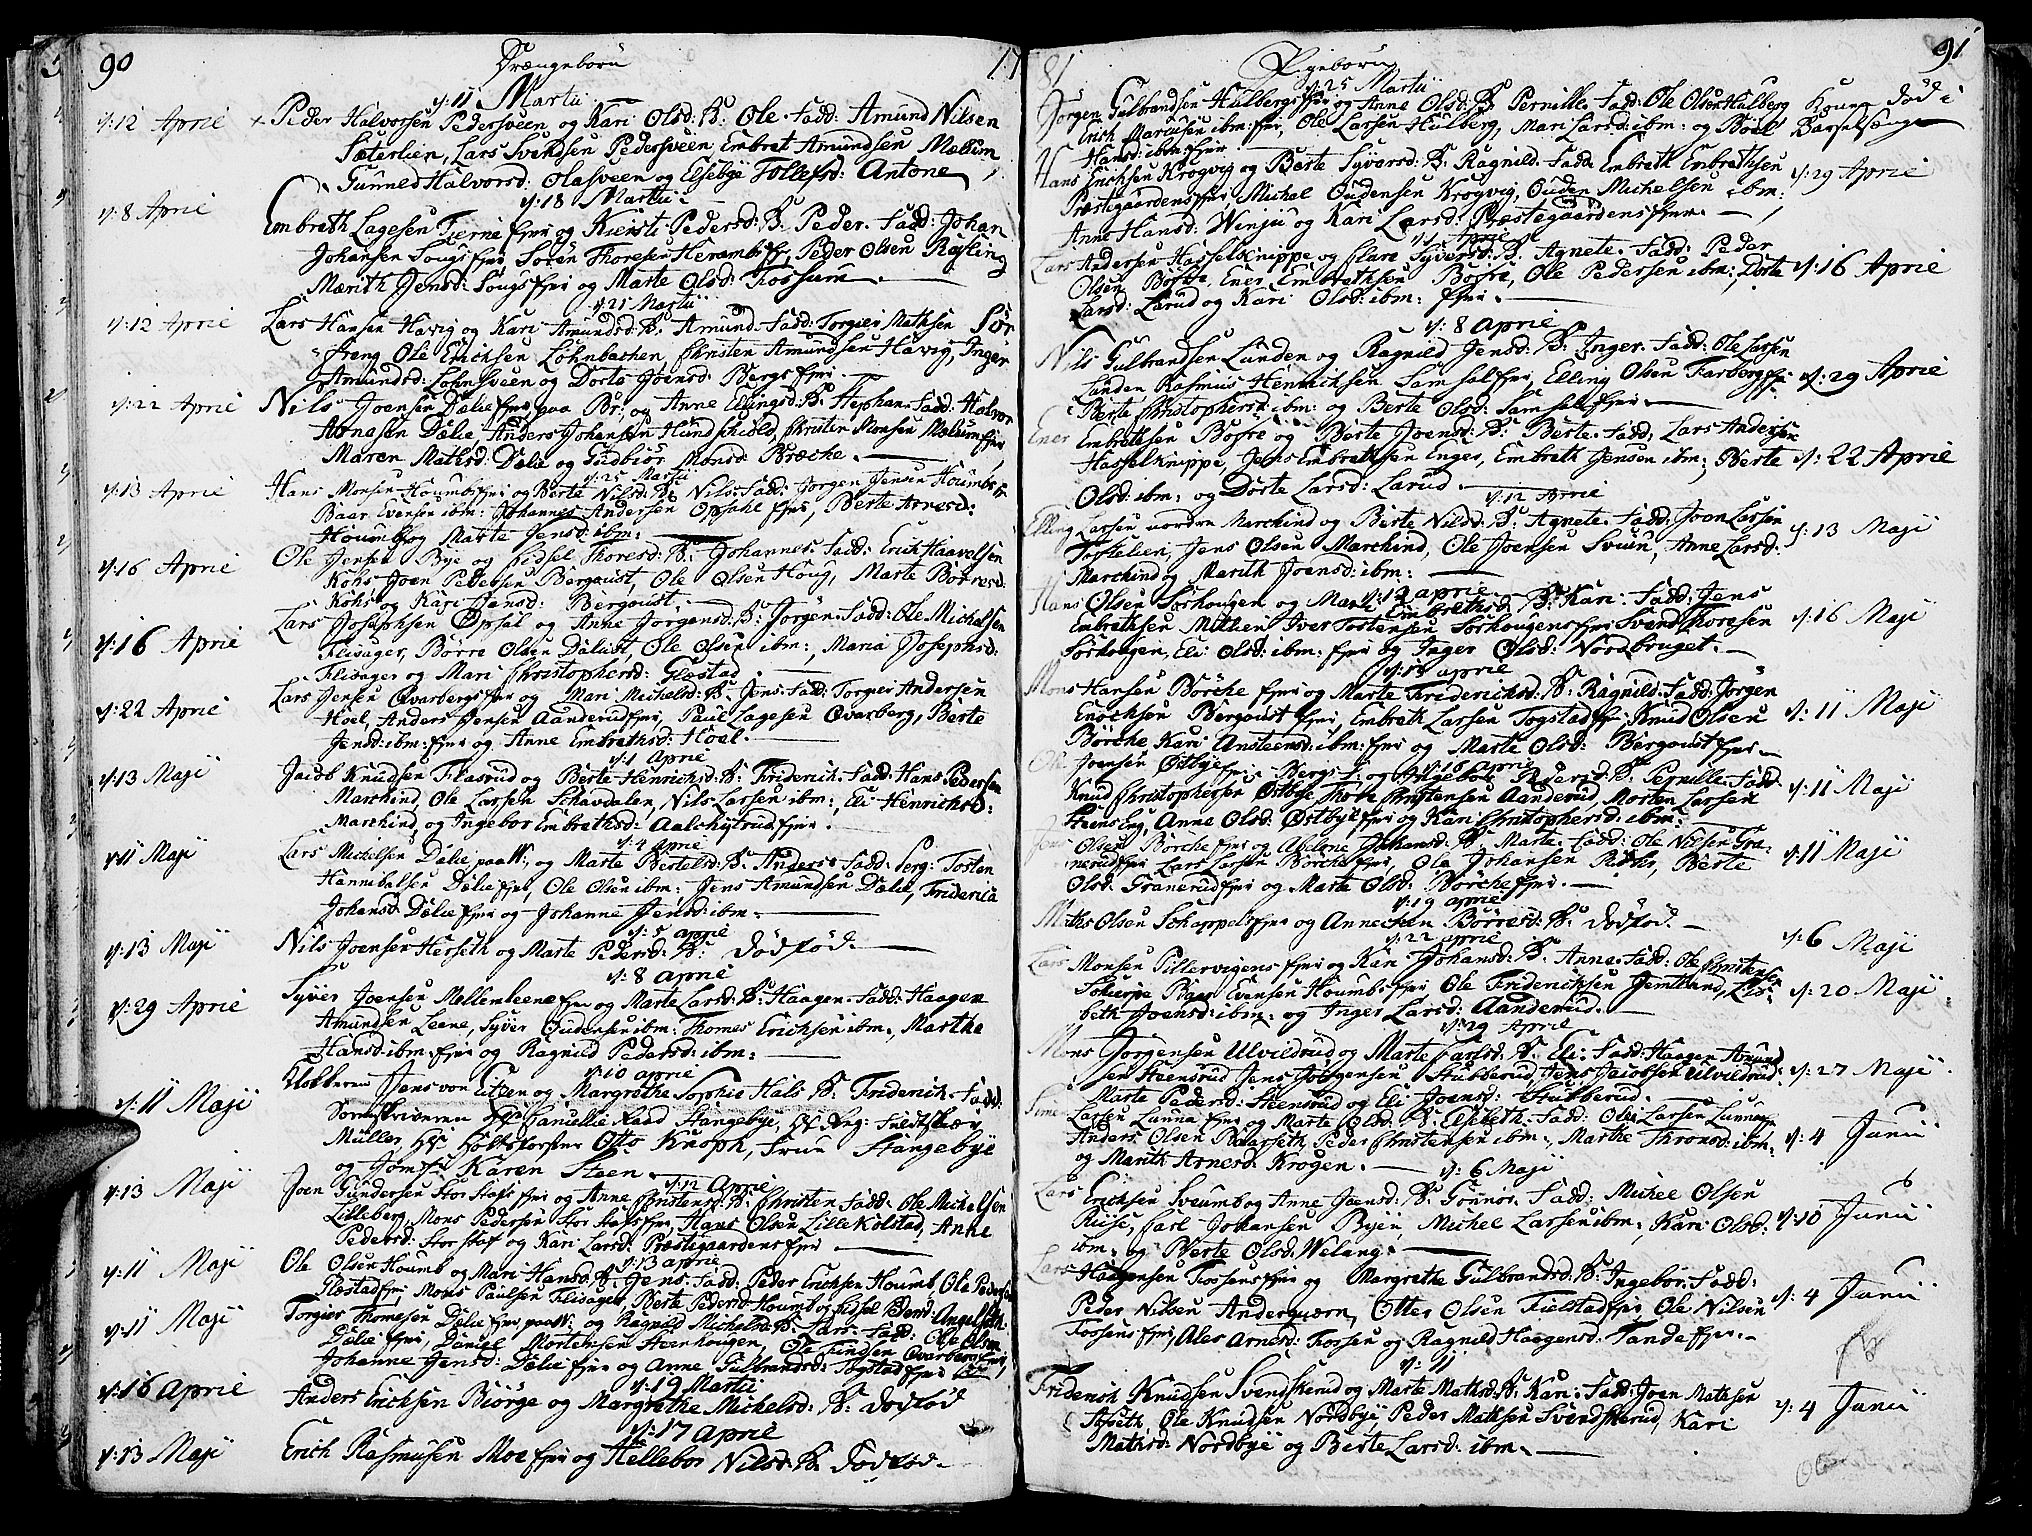 90 Drængebørn 17
d: 11 Martii
d: 12 April + Peder Halvorsen Pedersveen og Kari Olsd: B: Ole. Fadd: Amund Nilsen
Sæterlien, Lars Svendsen Pedersveen, Embret Amundsen Mælum,
Gunned Halvorsd: Olasveen og Elsebye Tollefsd: Antone
d: 18 Martii
d: 8 April Embreth Lagesen Tierne fieri og Kiersti Pedersd: B: Peder. Fadd: Johan
Johansen Sougs fieri Sören Thoresen Heramb fr, Peder Olsen Røfling
Marith Jensd: Sougsfieri og Marte Olsd: Fossum
d: 25 Martii
d: 12 April Lars Hansen Havig og Kari Amundsd: B: Amund. Fadd: Torgier Mathsen Sør
streng Ole Erichsen Löhnbachen, Christen Amundsen Havig, Inger
Amundsd: Löhnsveen og Dorte Joensd: Bergsfieri
d: 22 April Nils Joensen Dælie fieri paa Br: og Anne Ellingsd: B: Stephan. Fadd: Halvor
Arnesen Dælie Anders Johansen Hundschiold, Christen Monsen Mælumfieri
Maren Mathsd: Dælie og Gudbiør Monsd: Bræche.
d: 25 Martii
d: 13 April Hans Monsen Houmbsfieri og Berte Nilsd: B: Nils. Fadd: Jørgen Jensen Houmbs fr
Baar Evensen ibm: Johannes Andersen Opsahl fieri, Berte Arnesd:
Houmb og Marte Jensd: ibm:
d: 16 April Ole Jensen Bye og Sidsel Thoresd: B: Johannes. Fadd: Erich Haavelsen
Kohs Joen Pedersen Bergqvist, Ole Olsen Houg, Marte Børresd:
Kohs og Kari Jensd: Bergqvist.
d: 16 April Lars Josephsen Opsal og Anne Jørgensd: B: Jørgen. Fadd: Ole Michelsen
Flisager, Børre Olsen Dælust, Ole Olsen ibm:, Maria Josephsd:
Flisager og Mari Christophersd: Glostad
d: 22 April Lars Jensen Qvarbergsfieri og Mari Michelsd: B: Jens. Fadd: Torgier Andersen
Hoel, Anders Jensen Aanderud fieri, Paul Lagesen Qvarberg, Berte
Jensd: ibm: fieri og Anne Embrethsd: Hoel.
d: 1 April
d: 13 Maji Jacob Knudsen Flasrud og Berte Henrichsd: B: Friderich. Fadd: Hans Pedersen
Marchind, Ole Larsen Schavdalen, Nils Larsen ibm:, Eli Henrichsd:
Marchind, og Ingebor Embrethsd: Aalchystrud fieri.
d: 4 April
d: 11 Maji Lars Michelsen Dælie paa W:, og Marte Bertelsd: B: Anders. Fadd: Serg: Tosten
Hannibalsen Dælie fieri, Ole Olsen ibm: Jens Amundsen Dælie, Friderica
Johansd: Dælie fieri og Johanne Jensd: ibm.
d: 5 April
d: 13 Maji Nils Joensen Herseth og Marte Pedersd: B: Dödfød.
d: 8 April
d: 29 April Syver Joensen Mellemleene fieri og Marte Larsd: B: Haagen. Fadd: Haagen
Amundsen Leene, Syver Oudensen ibm: Thomes Erichsen ibm:, Marthe
Hansd: ibm: fieri og Ragnild Pedersd: ibm:
d: 10 April
d: 11 Maji Klokkeren Jens von Eitzen og Margrethe Sophie Hals B: Friderich. Fadd:
Sorenskriveren Hr Cancellie Raad Stangebye, Hr Reg: Feldtskiær
Müller, Hr Holtsforster Otto Knoph, Frue Stangebye
og Jomfr: Karen Steen.
d: 12 April
d: 13 Maji Joen Gundersen Stor Stafs fieri og Anne Christensd: B: Christen Fadd: Ole Michelsen
Lilleberg, Mons Pedersen Stor Stafsfieri, Hans Olsen Lille Kolstad, Anne
Pedersd: Storstaf og Kari Larsd: Præstegaardens fieri.
d: 13 April
d: 11 Maji Ole Olsen Houmb og Mari Hansd: B: Jens. Fadd: Peder Erichsen Houmb, Ole Pedersen
Glostad fieri Mons Paulsen Flisager, Berte Pedersd: Houmb og Sidsel
d: 11 Maji Torgier Thomesen Dælie fieri paa W: og Ragnild Michelsd: B: Lars. Fadd: Ole Olsen
Dælie fieri, Daniel Mortensen Steenhougen, Ole Findsen Qvarberg fieri
Johanne Jensd: Dælie fieri og Anne Gulbrandsd: Togstad fieri
d: 19 Martii
d: 16 April Anders Erichsen Biørge og Margrethe Michelsd: B: Dödfød
d: 17 April
d: 13 Maji Erich Rasmusen Moe fieri og Hellebor Nilsd: B: Dödfød.
81 Pigebørn 91
d: 25 Martii
Jørgen Gulbrandsen Hulbergs fieri og Anne Olsd: B: Pernille. Fadd: Ole Olsen Hulberg Kounen død i
Erich Mariusen ibm: fieri, Ole Larsen Hulberg, Mari Larsd: ibm: og Boel Barselseng
Hansd: ibm: fieri
Hans Erichsen Krogvig og Berte Syversd: B: Ragnild. Fadd: Embreth Embrethsen d: 29 April
Præstegaardens fieri Michel Oudensen Krogvig, Ouden Michelsen ibm:
Anne Hansd: Winju og Kari Larsd: Præstegaardens fieri.
d: 1 April
Lars Andersen Hasselknippe og Clare Syversd: B: Agnete. Fadd: Peder
Olsen Bøfre, Ener Embrethsen Bofre, Ole Pedersen ibm:, Dorte d: 16 April
Larsd: Larud og Kari Olsd: ibm: fieri.
d: 8 April
Nils Gulbrandsen Lunden og Ragnild Jensd: B: Inger. Fadd: Ole Larsen
Lunden Rasmus Henrichsen Samsal fieri, Elling Olsen Farberg fr d: 29 April
Berte Christophersd: ibm: og Berte Olsd: Samsal fieri.
Ener Embrethsen Bofre og Berte Joensd: B: Berte. Fadd: Lars Andersen
Hasselknippe, Jens Embrethsen Enger, Embreth Jensen ibm:, Berte d: 22 April
Olsd: ibm: og Dorte Larsd: Larud.
d: 12 April
Elling Larsen nordre Marchind og Berte Nilsd: B: Agnete. Fadd: Joen Larsen
Toftelien, Jens Olsen Marchind, Ole Joensen Sveen, Anne Larsd: d: 13 Maji
Marchind og Marith Joensd: ibm:
d: 12 April
Hans Olsen Sørhougen og Mari Embrethsd: B: Kari. Fadd: Jens
Embrethsen Mitlien Iver Tostensen Sørhougens fieri Svend Thoresen d: 16 Maji
Sørhougen, Eli Olsd: ibm: fieri og Inger Olsd: Nordbruget.
d: 13 April
Mons Hansen Børche fieri og Marte Friderichsd: B: Ragnild. Fadd: Jørgen
Enochsen Bergqvist fieri, Embreth Larsen Togstad fr: Knud Olsen d: 11 Maji
Børche Kari Ansteensd: ibm: fieri og Marte Olsd: Bergqvist fieri
d: 16 April
Ole Joensen Østbye fieri og Ingebor Pedersd: B: Pernille. Fadd:
Knud Christophersen Østbye Thore Christensen Aanderud, Morten Larsen d: 11 Maji
Steens Eng, Anne Olsd: Østbye fieri og Kari Christophersd: ibm:
Jens Olsen Børche fieri og Abelone Johansd: B: Marte. Fadd: Ole Nilsen Gra-
nerud fieri Lars Larsen Børche fieri, Ole Johansen Berte d: 11 Maji
Olsd: Granerud fieri og Marte Olsd: Børche fieri.
d: 19 April
Maths Olsen Scheppels fieri og Anne Børresd: B: Dödfød.
d: 22 April d: 6 Maji
Lars Monsen Pillervigens fieri og Kari Johansd: B: Anne. Fadd: Ole Christensen
Scherpe Baar Evensen Houmbs fieri Ole Fridericksen Jemtland, Lis- d: 20 Maji
beth Joensd: ibm: og Inger Larsd: Aanderud.
d: 29 April
Mons Jørgensen Ulvildrud og Marte Carlsd: B: Eli. Fadd: Haagen Amund-
sen Steensrud Jens Jørgensen Stubberud, Jens Jacobsen Ulvildrud d: 27 Maji
Marte Pedersd: Steensrud og Eli Joensd: Stubberud.
Sime Larsen Lunna fieri og Marte Olsd: B: Elsebeth. Fadd: Ole Larsen Lunna fr
Anders Olsen Baarseth Peder Christensen ibm:, Marthe Thronsd: ibm: d: 4 Junii
og Marith Arnesd: Krogen.
d: 6 Maji
Lars Erichsen Sveum og Anne Joensd: B: Gonnor. Fadd: Michel Olsen
Riise, Carl Johansen Byen, Michel Larsen ibm:, Kari Olsd: d: 10 Junii
ibm: og Berte Olsd: Welang.
Lars Haagensen Fossens fieri og Margrethe Gulbrandsd: B: Ingebor. Fadd:
Peder Nilsen Anderqvern, Otter Olsen Fielstad fieri, Ole Nilsen d: 4 Junii
Fossens fieri, Ales Arnesd: Fossen og Ragnild Haagensd: Tande fieri.
d: 11
Friderich Knudsen Svendskerud og Marte Mathsd: B: Kari. Fadd: Joen Mathsen
Sioseth, Ole Knudsen Nordbye Peder Mathsen Svendskerud, Kari d: 4 Junii
Mathsd: Nordbye og Berte Larsd: ibm.